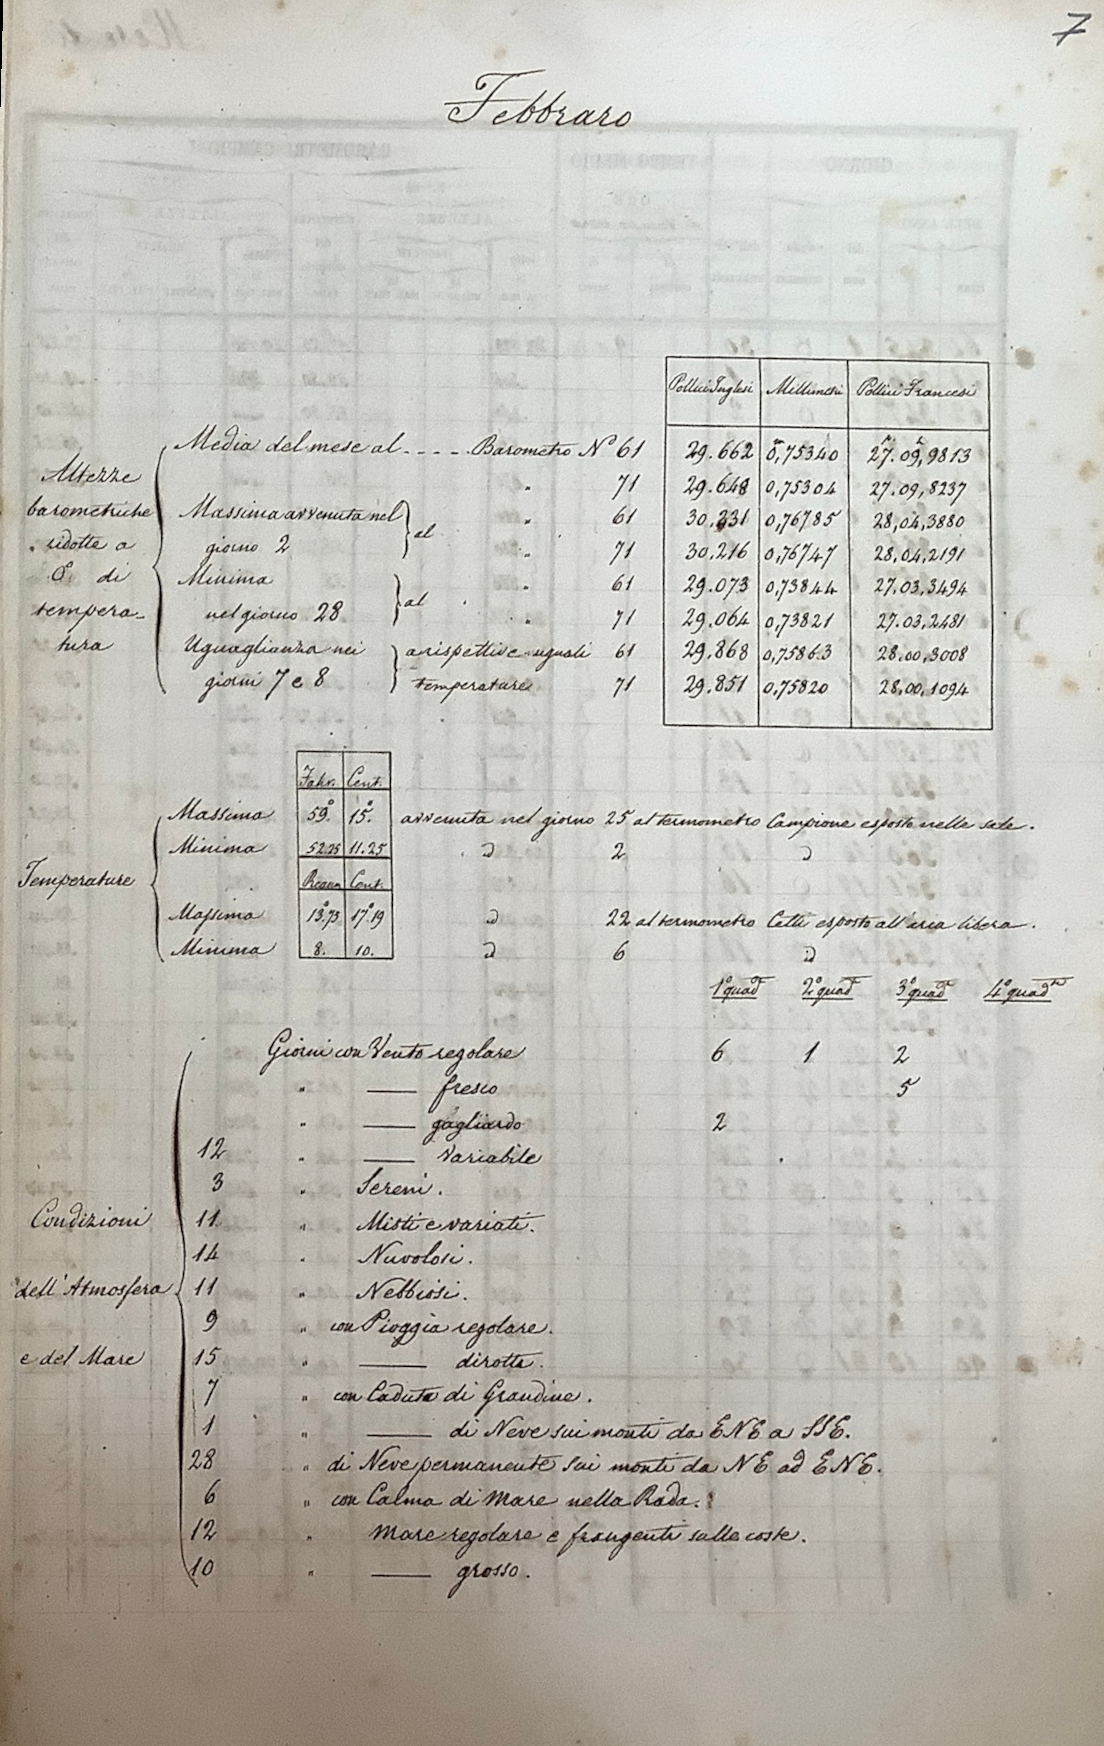 7
Febbraro
Pollici Inglesi Millimetri Pollici Francesi
Media del mese al - - - - Barometro Nº 61 29.662 0,75340 27.09,9813
Altezze " 71 29.648 0,75304 27.09,8237
barometriche Massima avvenuta nel al " 61 30.231 0,76785 28,04,3880
ridotte a giorno 2 " 71 30.216 0,76747 28,04,2191
0° di Minima al " 61 29.073 0,73844 27.03,3494
tempera- nel giorno 28 " 71 29.064 0,73821 27.03,2481
tura Uguaglianza nei a rispettive uguali 61 29.868 0,75863 28.00,3008
giorni 7 e 8 temperature 71 29.851 0,75820 28,00,1094
Fahr. Cent.
Massima 59° 15° avvenuta nel giorno 25 al termometro Campione esposto nelle sale.
Minima 52.25 11.25 D 2 D
Temperature Reaum Cent.
Massima 13°,73 17°19 D 22 al termometro Cetti esposto all'aria libera.
Minima 8. 10. D 6 D
1° quad.te 2° quad.te 3° quad.te 4° quad.te
Giorni con Vento regolare 6 1 2
" —— fresco 5
" —— gagliardo 2
12 " —— variabile
3 " Sereni.
Condizioni 11 " Misti e variati.
14 " Nuvolosi.
dell'Atmosfera 11 " Nebbiosi.
9 " con Pioggia regolare.
e del Mare 15 " —— dirotta.
7 " con Caduta di Grandine.
1 " —— di Neve sui monti da ENE a SSE.
28 " di Neve permanente sui monti da NE ad ENE.
6 " con Calma di Mare nella Rada.
12 " Mare regolare e frangenti sulle coste.
10 " —— grosso.